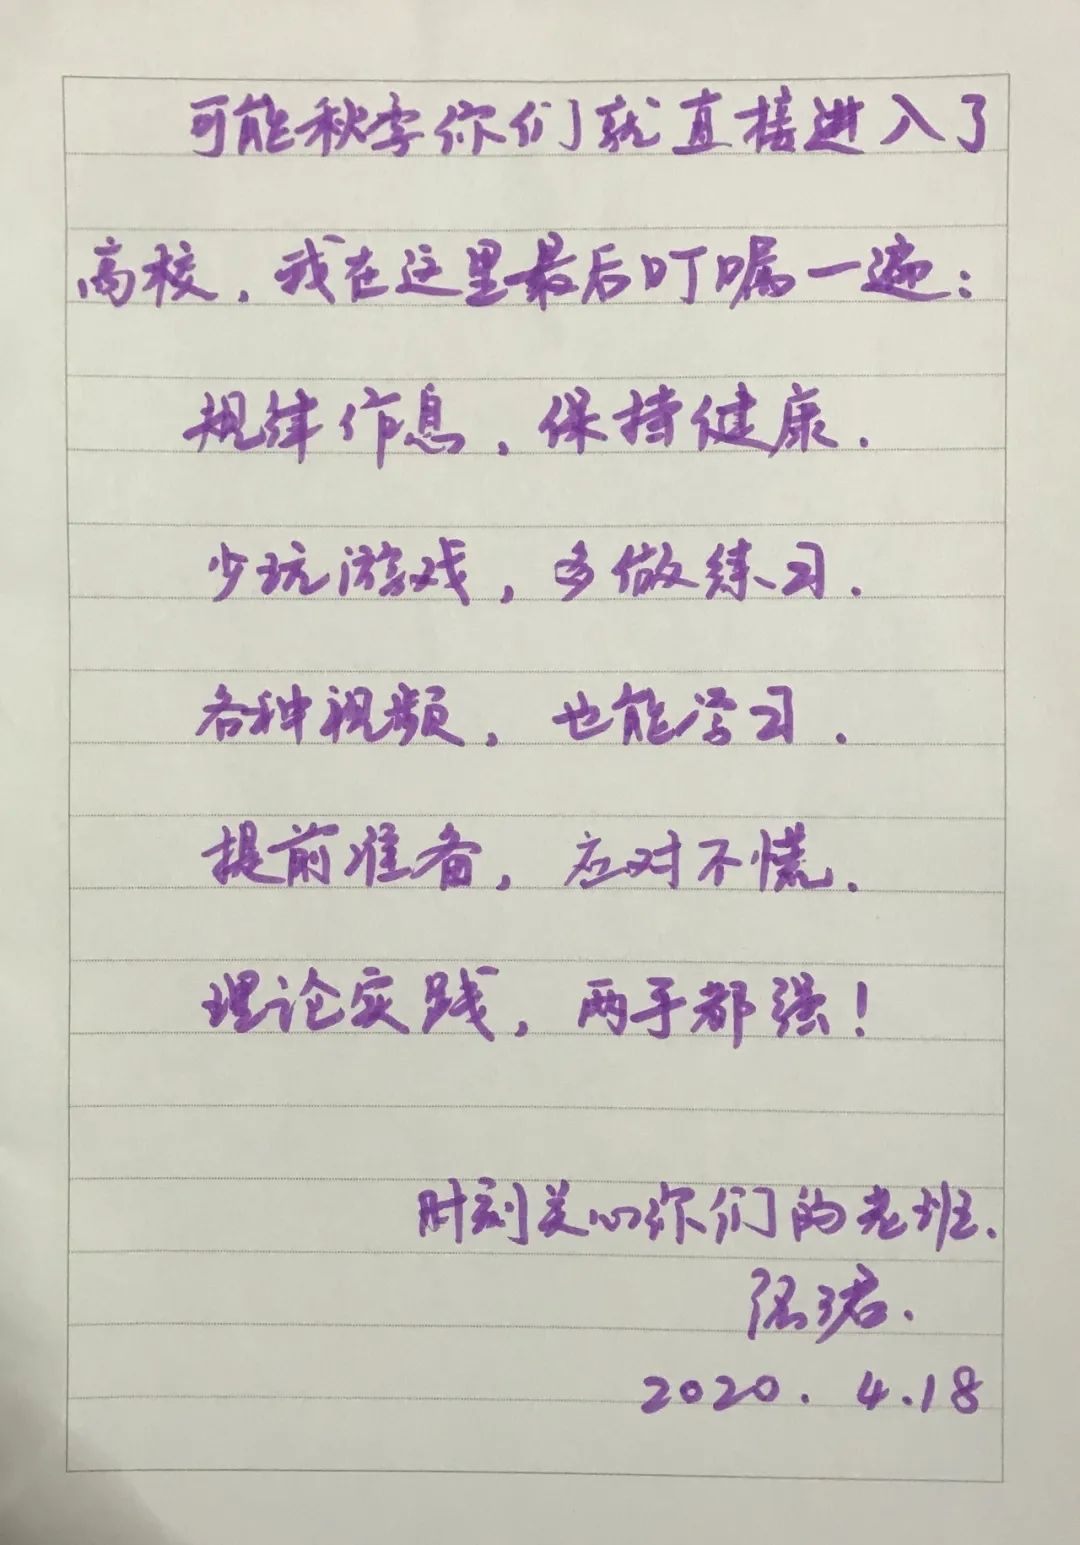 可能秋季你们就直接进入了
高校，我在这里最后叮嘱一遍：
规律作息，保持健康.
少玩游戏，多做练习.
各种视频，也能学习.
提前准备，应对不慌.
理论实践，两手都强！
时刻关心你们的老班.
珺.
2020.4.18